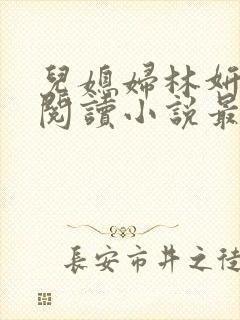 兒媳婦林妍
閱讀小說最
長安市井之徒